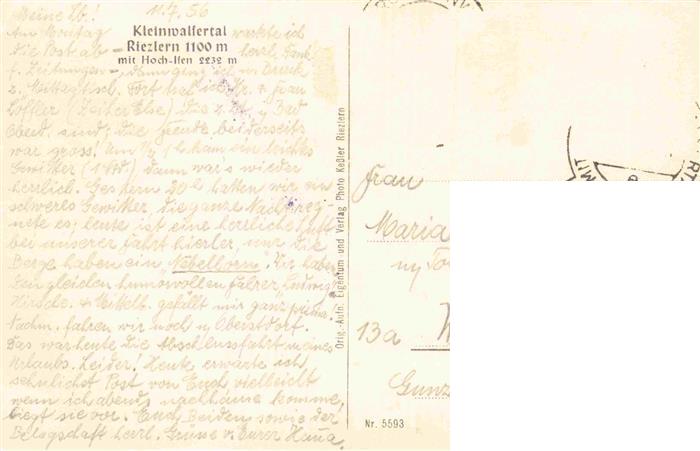 Meine Lb.! 11.7.56
Kleinwalsertal
Riezlern 1100 m
mit Hoch-Ifen 2232 m
Am Montag wartete ich
die Post ab - herzl. Dank
f. Zeitungen -, dann ging ich
z. Mittagtisch. Dort traf ich Hr. & Frau
Löffler (Else) die z. Zt. i/ Bad
Oberd. sind, die Freude beiderseits
war gross! Um ½ 1 h kam ein leichtes
Gewitter dann war's wieder
herrlich. Gestern 20h hatten wir ein
schweres Gewitter, die ganze Nacht reg-
nete es; heute ist eine herrliche Luft
bei unserer Fahrt hierher, nur die
Berge haben ein „Nebelhorn". Wir haben
den gleichen humorvollen Fahrer „Ludwig"
Hirsche. & Mittelb. gefällt mir ganz prima!
Nachm. fahren wir noch n. Oberstdorf.
Das war heute die Abschlussfahrt meines
Urlaubs. Leider! Heute erwarte ich
sehnlichst Post von Euch vielleicht
wenn ich abends nachhause komme,
liegt sie vor. Euch Beiden sowie der
Belegschaft herzl. Grüsse v. Eurer Hanna.
Orig.-Aufn. Eigentum und Verlag Photo Keßler Riezlern
Frau
Maria
13a
Gunz
Nr. 5593
MIT